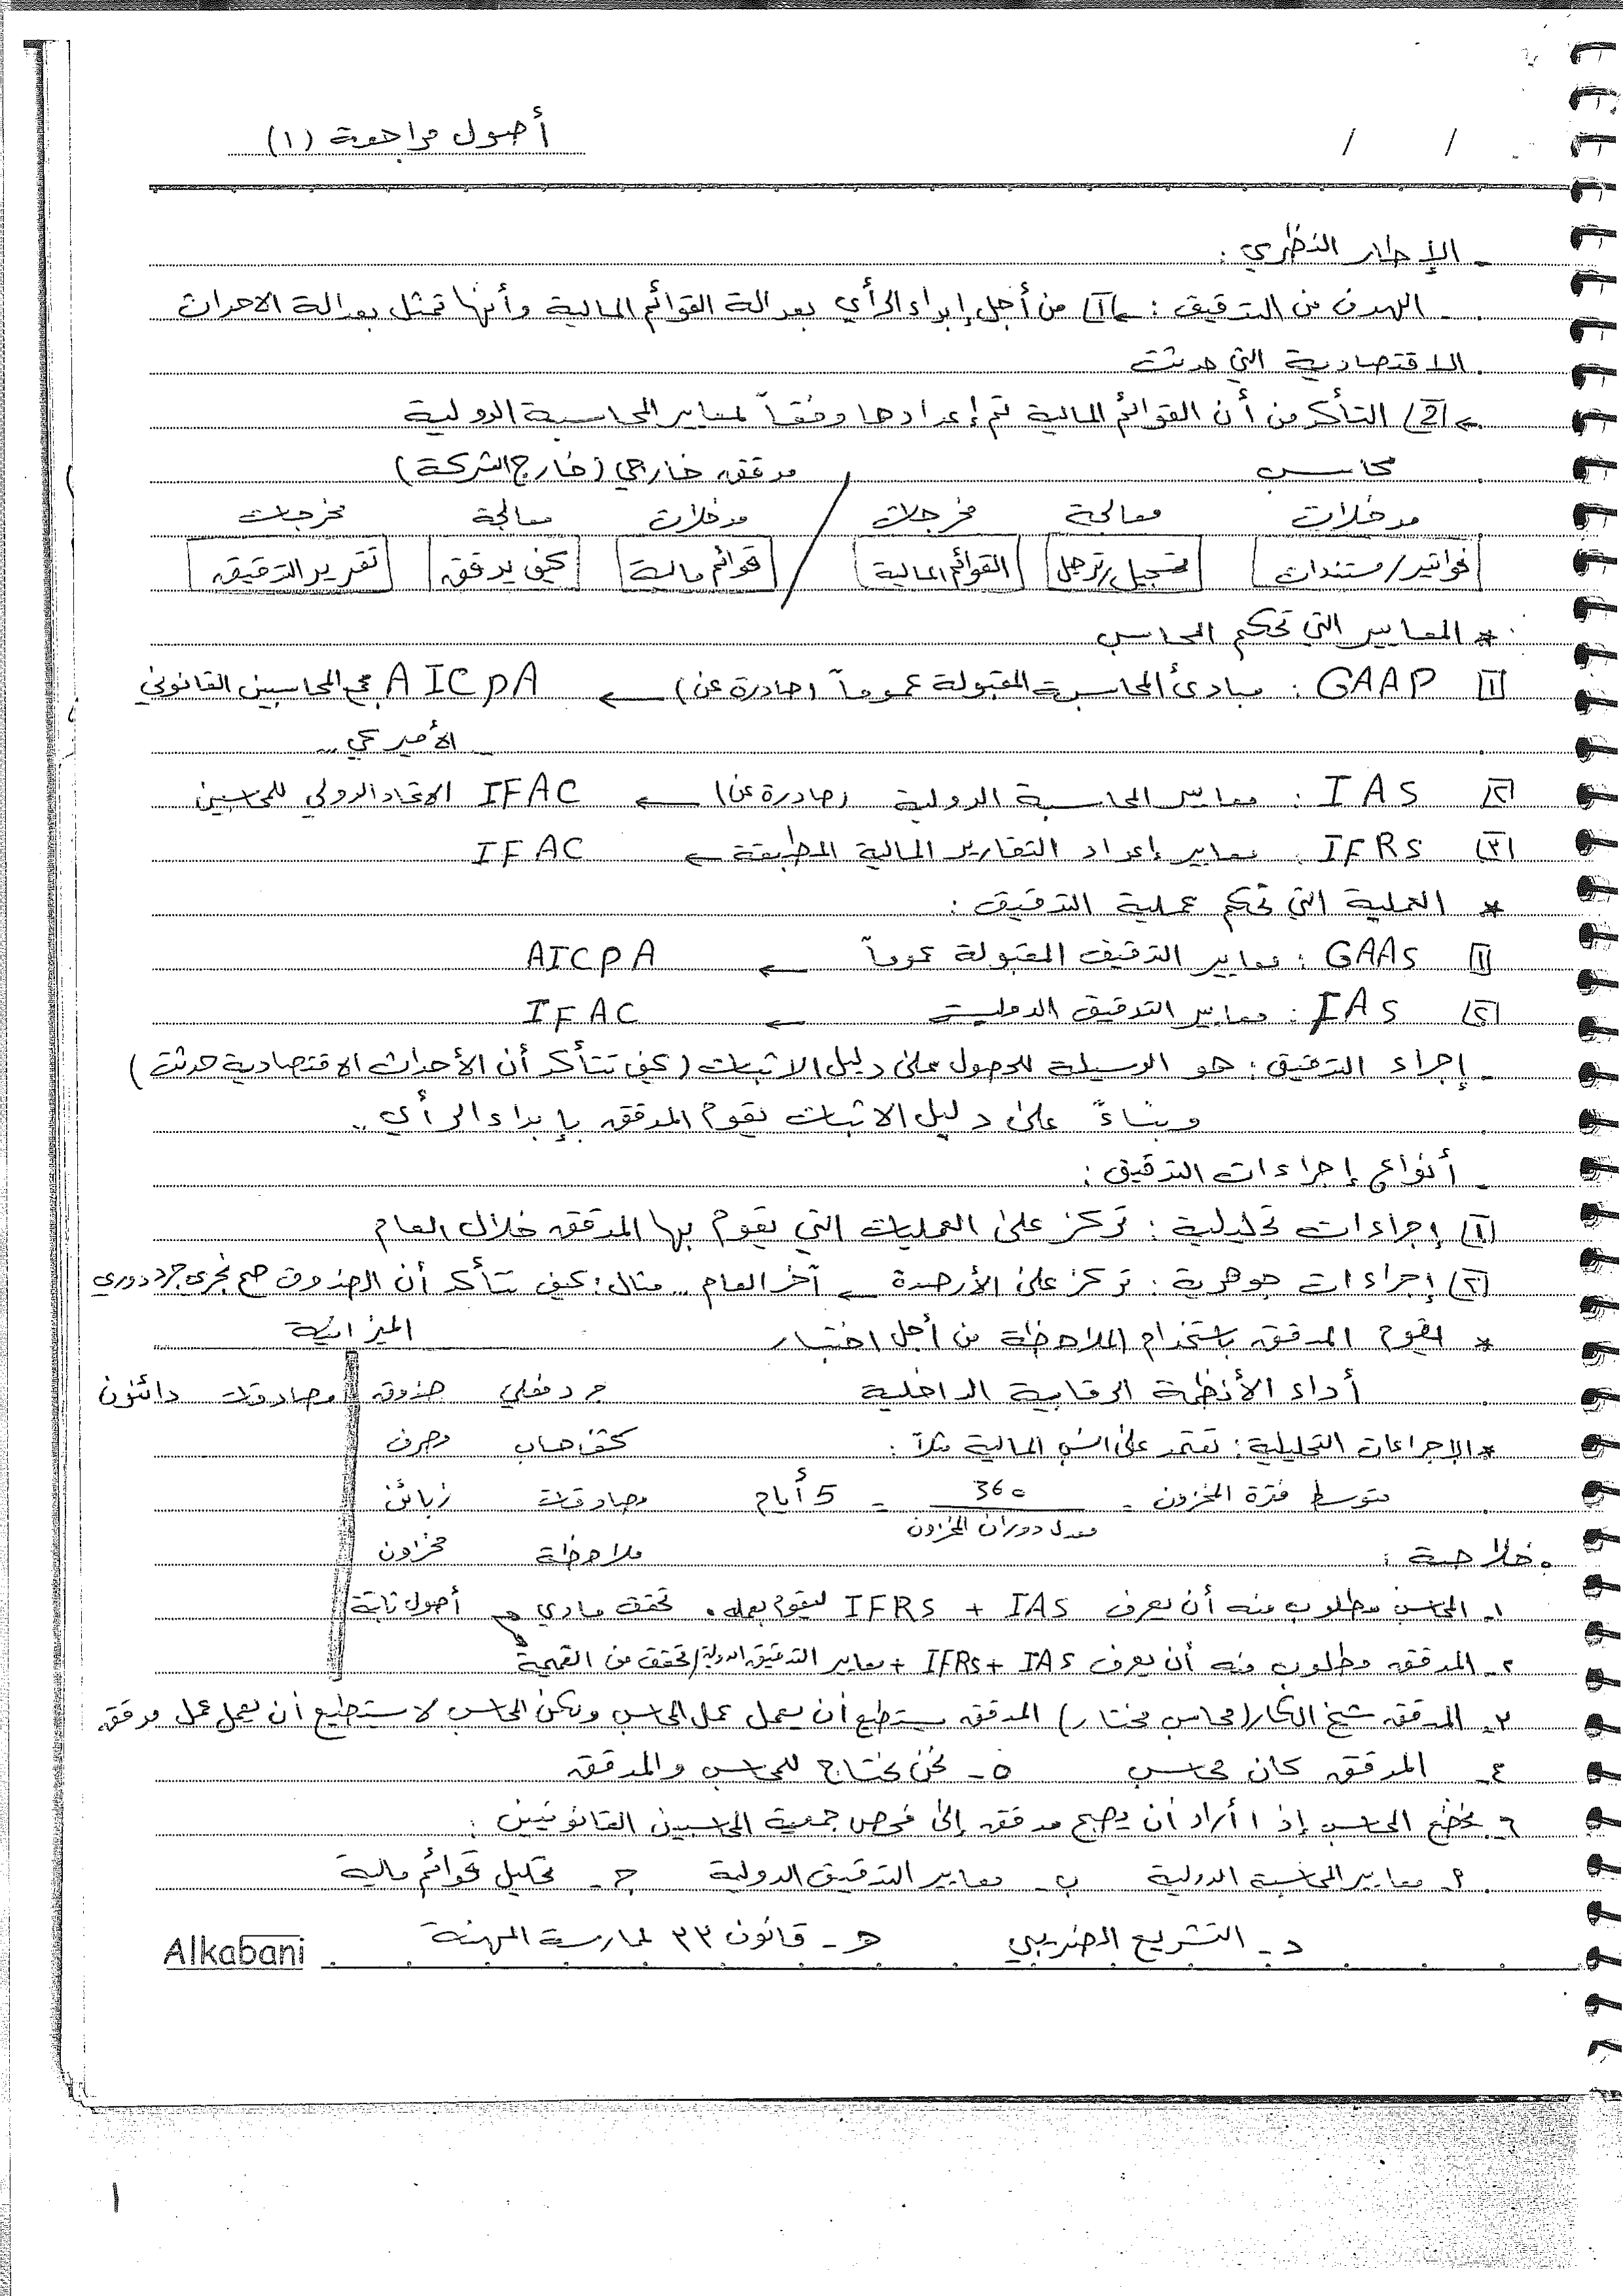 أصول مراجعة (١)
/ /
- الإطار النظري :
- الهدف من التدقيق : ← ١) من أجل إبداء الرأي بعدالة القوائم المالية وأنها تمثل بعدالة الاحداث
الاقتصادية التي حدثت
← 2) التأكد من أن القوائم المالية تم إعدادها وفقاً لمعايير المحاسبة الدولية
محاسب / مدقق خارجي (خارج الشركة)
مدخلات معالجة مخرجات / مدخلات معالجة مخرجات
فواتير/مستندات تسجيل/ترحيل القوائم المالية / قوائم مالية كيف يدقق تقرير التدقيق
* المعايير التي تحكم المحاسب
١) GAAP : مبادئ المحاسبة المقبولة عموماً (صادرة عن) ← AICPA مجمع المحاسبين القانوني
الأميركي ..
٢) IAS : معايير المحاسبة الدولية (صادرة عن) ← IFAC الاتحاد الدولي للمحاسبين
٣) IFRS : معايير إعداد التقارير المالية المطبقة ← IFAC
* العملية التي تحكم عملية التدقيق :
١) GAAS : معايير التدقيق المقبولة عموماً ← AICPA
٢) IAS : معايير التدقيق الدولية ← IFAC
- إجراء التدقيق : هو الوسيلة للحصول على دليل الاثبات (كيف تتأكد أن الأحداث الاقتصادية حدثت)
وبناءً على دليل الاثبات يقوم المدقق بإبداء الرأي ..
- أنواع إجراءات التدقيق :
١) إجراءات تحليلية : تركز على العمليات التي يقوم بها المدقق خلال العام
٢) إجراءات جوهرية : تركز على الأرصدة ← آخر العام .. مثال : كيف تتأكد أن الصندوق صح نجري جرد دوري
* يقوم المدقق باستخدام الملاحظة من أجل اختبار الميزانية
أداء الأنظمة الرقابية الداخلية جرد فعلي صندوق مصادقات دائنون
* الإجراءات التحليلية : تعتمد على النسب المالية مثلاً : كشف حساب مصرف
متوسط فترة المخزون = 360 = 5 أيام مصادقات زبائن
معدل دوران المخزون
• خلاصة : ملاحظة مخزون
١- المحاسب مطلوب منه أن يعرف IFRS + IAS ليقوم بعمله . تحقق مادي أصول ثابتة
٢- المدقق مطلوب منه أن يعرف IFRS + IAS + معايير التدقيق الدولية/تحقق من القيمة
٣- المدقق شيخ الكار (محاسب مختار) المدقق يستطيع أن يعمل عمل المحاسب ولكن المحاسب لا يستطيع أن يعمل عمل مدقق
٤- المدقق كان محاسب ٥- نحن نحتاج للمحاسب والمدقق
٦- يخضع المحاسب إذا أراد أن يصبح مدقق إلى فحص جمعية المحاسبين القانونيين :
٢- معايير المحاسبة الدولية ب- معايير التدقيق الدولية ج- تحليل قوائم مالية
د- التشريع الضريبي ه- قانون ٣٣ لممارسة المهنة
Alkabani
١